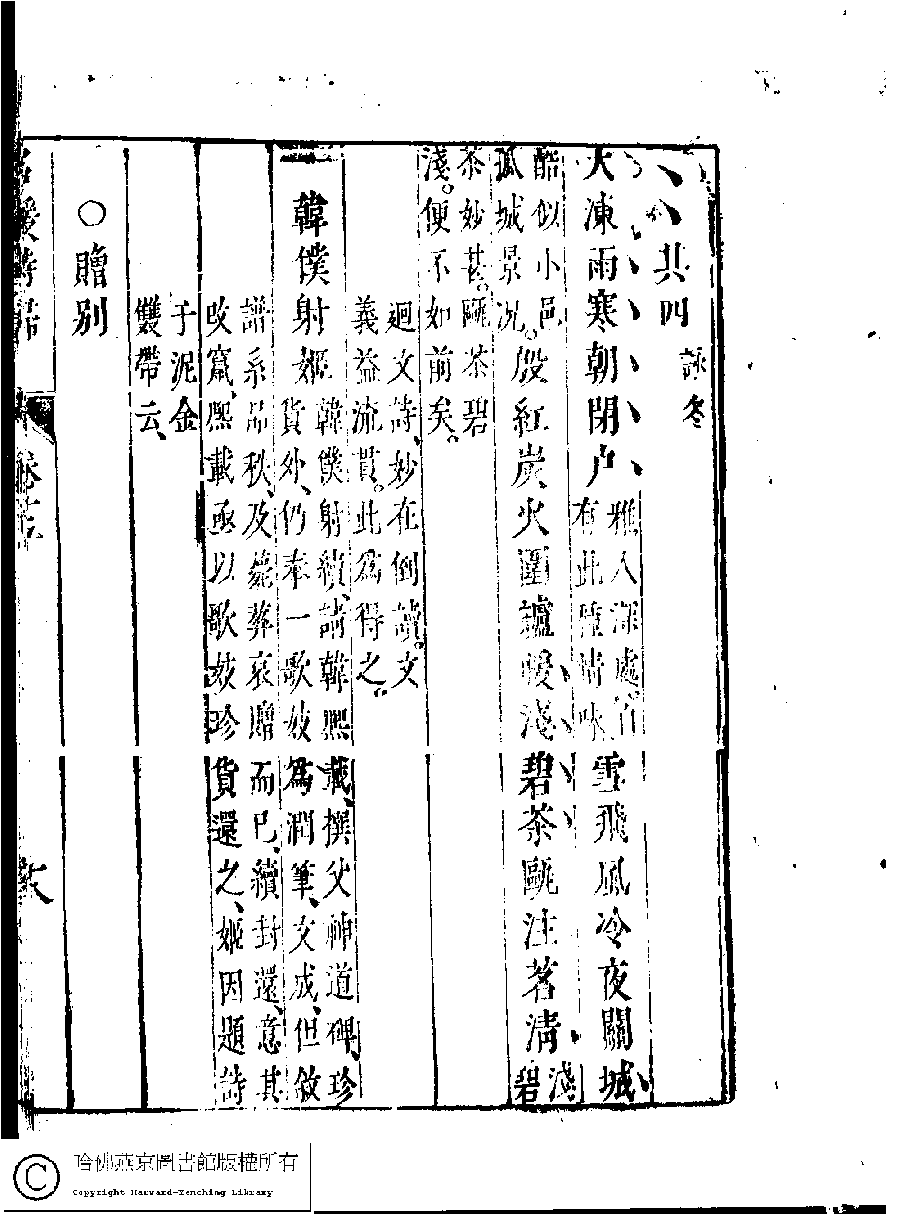 其四 詠冬
天凍雨寒朝閉户
雅人深處自
有此種情味
雪飛風冷夜關城
酷似小邑
孤城景况。
殷紅炭火圍爐暖淺碧茶甌注茗清
淺碧
茶妙甚。甌茶碧
淺。便不如前矣。
迴文詩、妙在倒讀。文
義益流貫。此為得之。
韓僕射姬
韓僕射續、請韓熙載、撰父神道碑、珍
貨外、仍奉一歌妓為潤筆、文成、但敘
譜系品秩、及薨葬哀贈而已、續封還、意其
改竄、熙載亟以歌妓珍貨還之、姬因題詩
于泥金
雙帶云、
○贈別
名媛詩歸
哈佛燕京圖書館版權所有
Copyright Harvard-Yenching Library